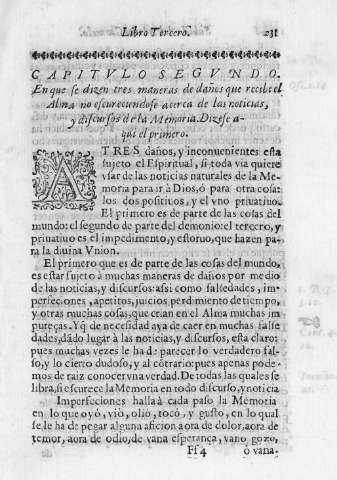 Libro Tercero. 231
CAPITVLO SEGVNDO.
En que se dizen tres maneras de daños que recibe el
Alma no escureciendose acerca de las noticias,
y discursos de la Memoria. Dizese a-
qui el primero.
A TRES daños, y inconuenientes està
sujeto el Espiritual, si toda via quiere
vsar de las noticias naturales de la Me-
moria para ir à Dios, ò para otra cosa:
los dos positiuos, y el vno priuatiuo.
El primero es de parte de las cosas del
mundo: el segundo de parte del demonio: el tercero, y
priuatiuo es el impedimento, y estoruo, que hazen pa-
ra la diuina Vnion.
El primero que es de parte de las cosas del mundo,
es estar sujeto à muchas maneras de daños por medio
de las noticias, y discursos: asi como falsedades, im-
perfeciones, apetitos, juicios perdimiento de tiempo,
y otras muchas cosas, que crian en el Alma muchas im-
pureças. Y q̃ de necesidad aya de caer en muchas false
dades, dãdo lugar à las noticias, y discursos, està claro:
pues muchas vezes le ha de parecer lo verdadero fal-
so, y lo cierto dudoso, y al cõtrario: pues apenas pode-
mos de raiz conocer vna verdad. De todas las quales se
libra, si escurece la Memoria en todo discurso, y noticia
Imperfeciones halla à cada paso la Memoria
en lo que oyò, viò, oliò, tocò, y gustò, en lo qual
se le ha de pegar alguna aficion aora de dolor, aora de
temor, aora de odio, de vana esperança, vano gozo,
Ff 4 ò vana-